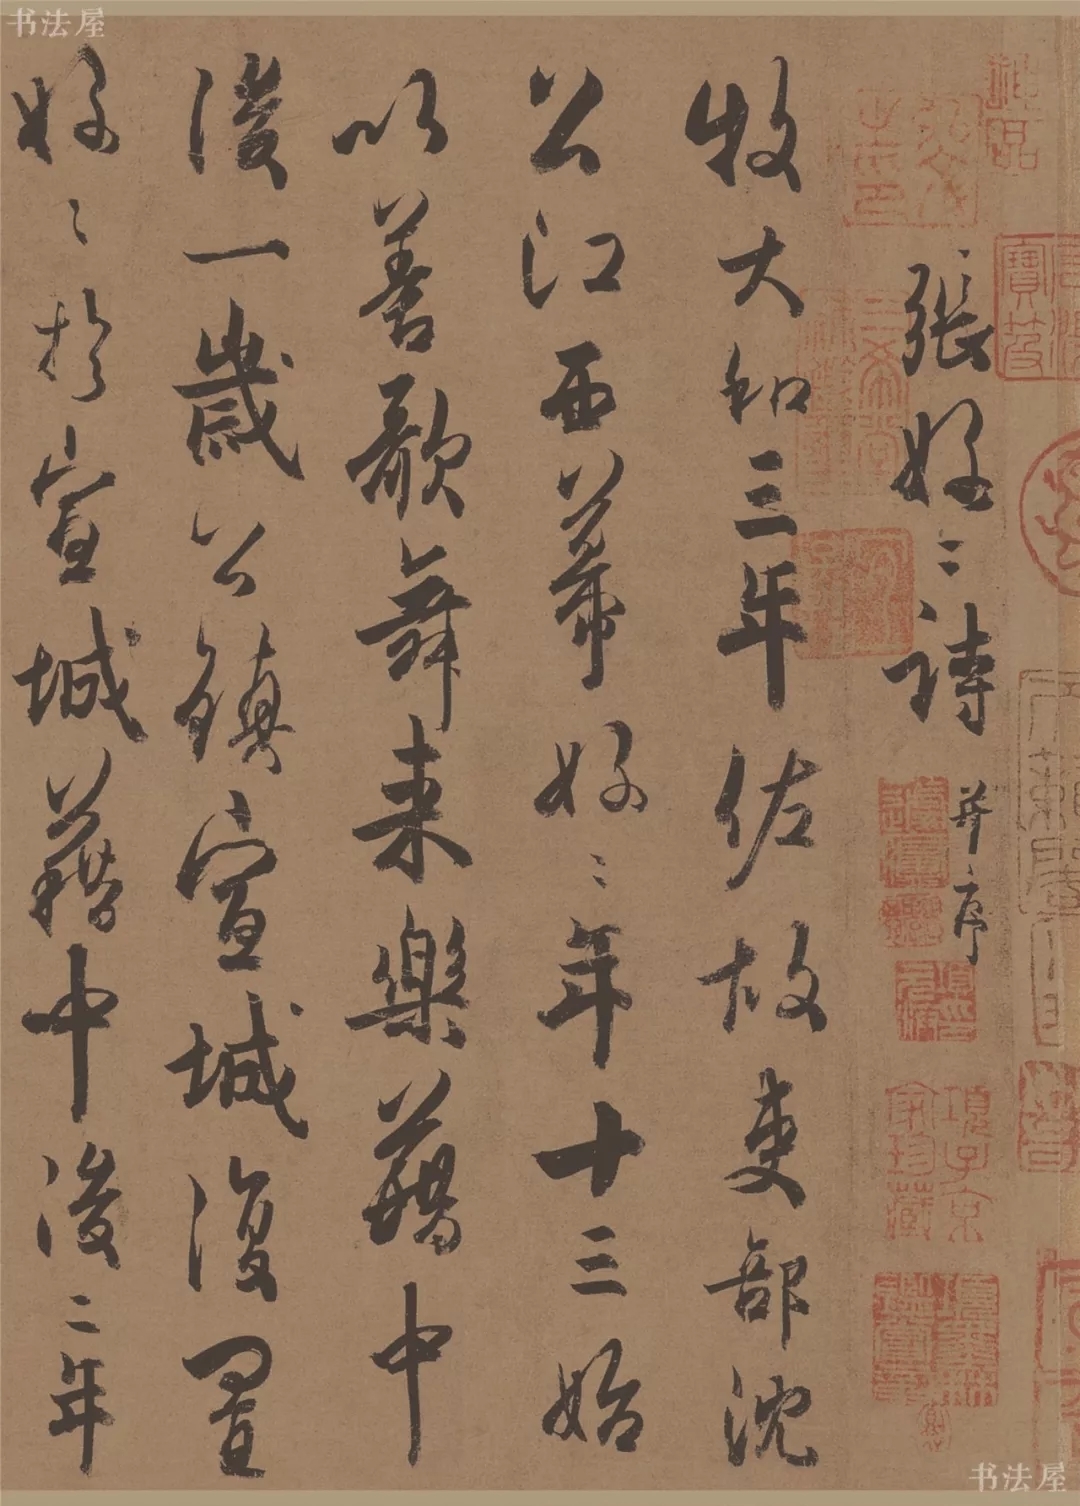 張好〻詩 并序
牧大和三年佐故吏部沈
公江西幕好〻年十三始
以善歌舞来樂籍中
後一歲公鎮宣城復置
好〻於宣城籍中後二年
書法屋
书法屋
神品
項子京家珍藏